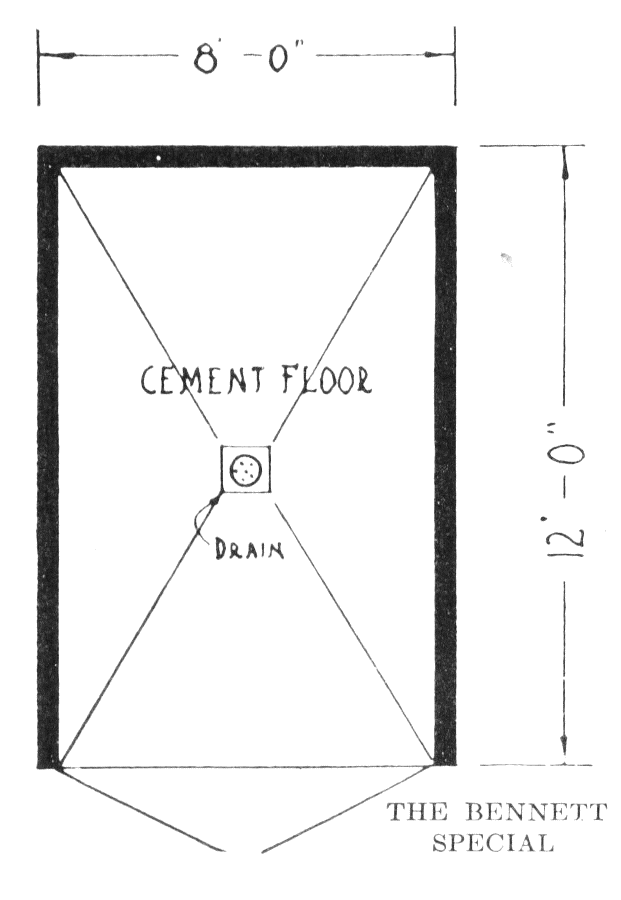 8' - 0"
CEMENT FLOOR
12' - 0"
DRAIN
THE BENNETT
SPECIAL